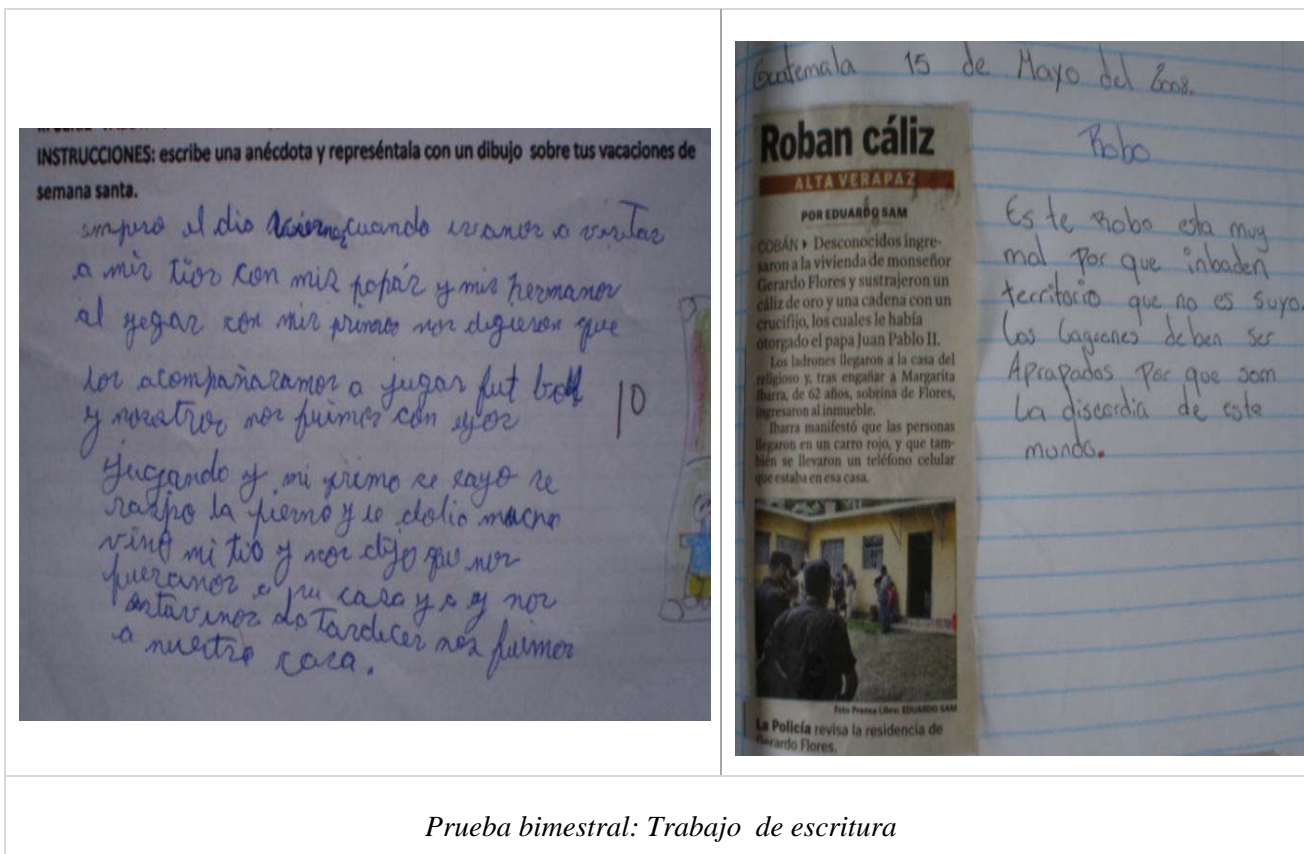 INSTRUCCIONES: escribe una anécdota y represéntala con un dibujo sobre tus vacaciones de
semana santa.
empero el dia viernes cuando ivamos a visitar
a mis tios con mis papás y mis hermanos
al yegar con mis primos nos digieron que
los acompañaramos a jugar fut boll
y nosotros nos fuimos con eyos
10
jugando y mi primo se cayo se
raspo la pierna y le dolio mucho
vino mi tio y nos dijo que nos
fueramos a su casa y a y nos
do Tardecer nos fuimos
a nuestra casa.
Guatemala 15 de Mayo del 2008.
Roban cáliz
ALTA VERAPAZ
POR EDUARDO SAM
COBÁN Desconocidos ingre-
saron a la vivienda de monseñor
Gerardo Flores y sustrajeron un
cáliz de oro y una cadena con un
crucifijo, los cuales le había
otorgado el papa Juan Pablo II.
Los ladrones llegaron a la casa del
religioso y, tras engañar a Margarita
Ibarra, de 62 años, sobrina de Flores,
ingresaron al inmueble.
Ibarra manifestó que las personas
llegaron en un carro rojo, y que tam-
bién se llevaron un teléfono celular
que estaba en esa casa.
Foto Prensa Libre: EDUARDO SAM
La Policía revisa la residencia de
Gerardo Flores.
Robo
Es te Robo esta muy
mal Por que inbaden
territorio que no es suyo.
Los deben ser
Aprapados Por que som
La discordia de este
mundo.
Prueba bimestral: Trabajo de escritura